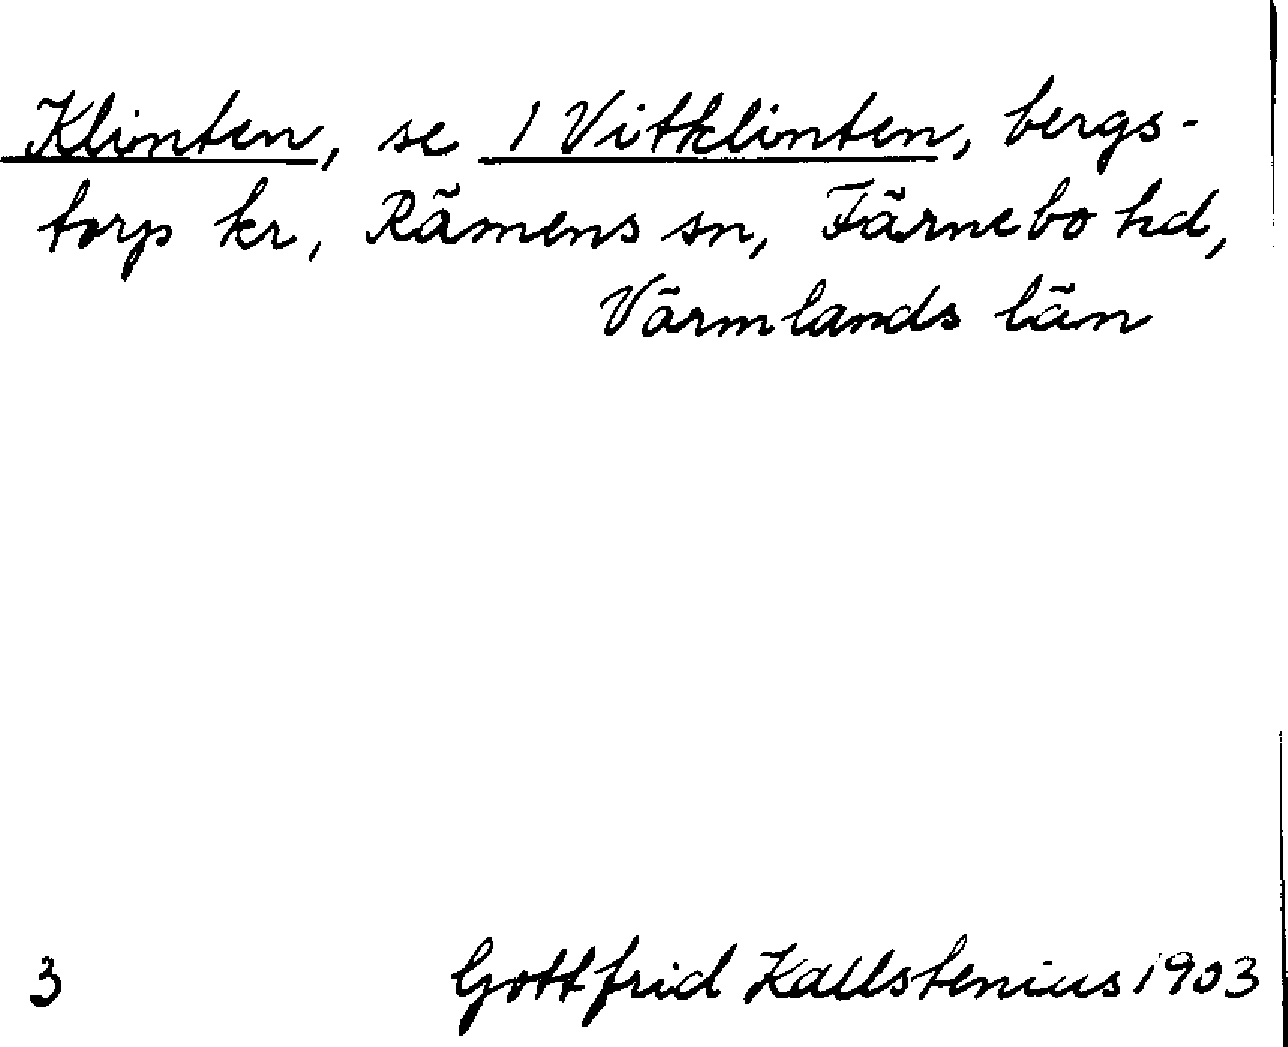 Klinten, se 1 Vitklinten, bergs-
torp kr, Rämens sn, Färnebo hd,
Värmlands län
3 Gottfrid Kallstenius 1903